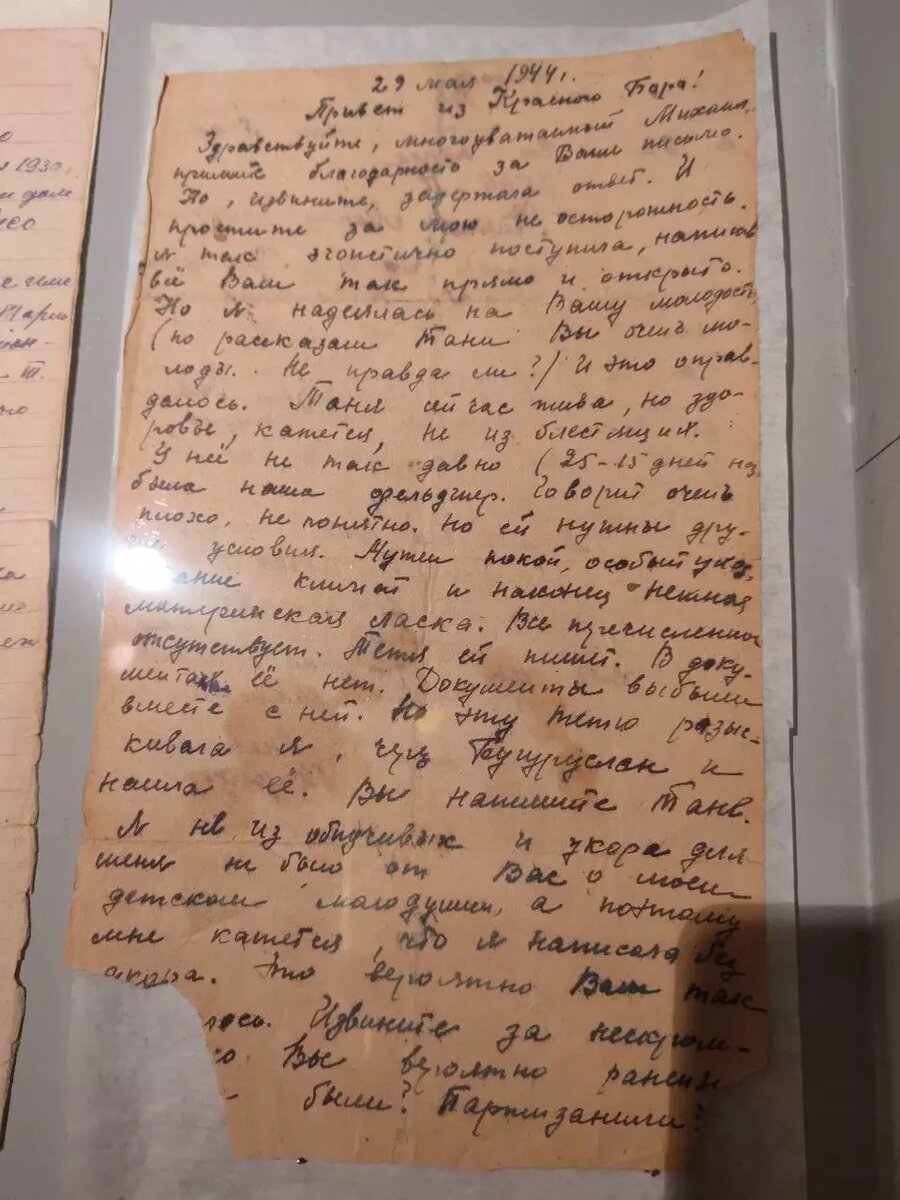 29 мая 1944 г.
Привет из Красного Бора!
Здравствуйте, многоуважаемый Михаил,
примите благодарность за Ваше письмо.
Но, извините, задержала ответ. И
простите за мою не осторожность.
Я так эгоистично поступила, написав
всё Вам так прямо и открыто.
Но я надеялась на Вашу молодость
(по рассказам Тани Вы очень мо-
лоды. Не правда ли?) И это оправ-
далось. Таня сейчас жива, но здо-
ровье, кажется, не из блестящих.
У неё не так давно (25-15 дней наз.
была наша фельдшер. Говорит очень
плохо, не понятно. Но ей нужны дру-
гие условия. Нужен покой, особый уход,
климат и наконец нежная
материнская ласка. Все перечисленное
отсутствует. Тетя ей пишет. В доку-
ментах её нет. Документы выбыли
вместе с ней. Но эту тетю разыс-
кивала я, через Бугуруслан и
нашла её. Вы напишите Тане.
Я не из обидчивых и укора для
меня не было от Вас о моем
детском малодушии, а поэтому
мне кажется, что я написала без
укора. Это вероятно Вам так
лось. Извините за нескром-
Вы вероятно ранены
были? Партизанили?
1930.
и дом